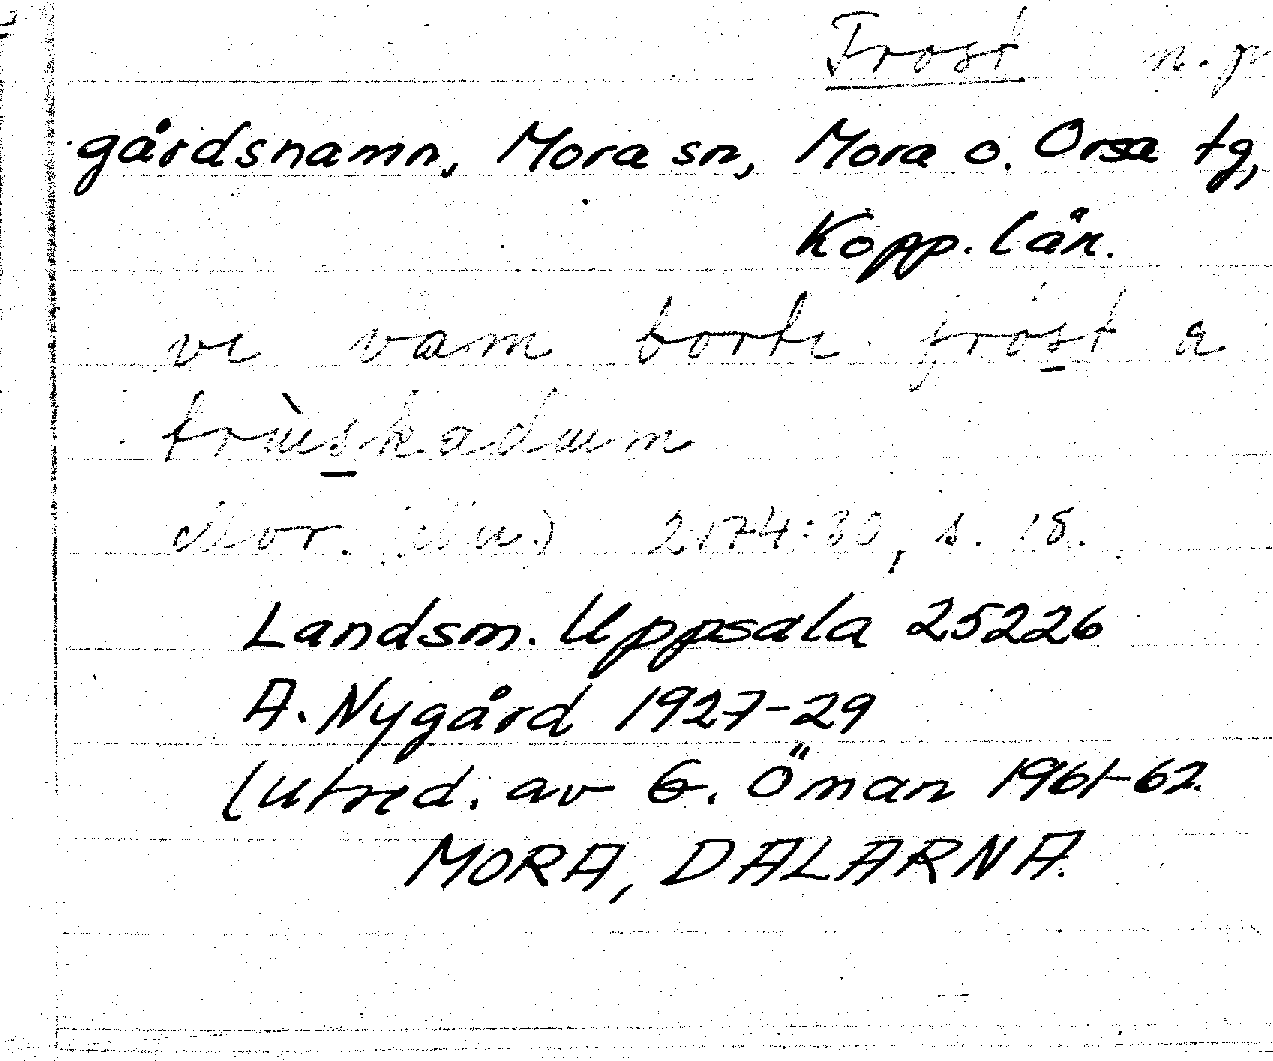 Frost n.p
gårdsnamn, Mora sn, Mora o. Orsa tg,
Kopp. län.
ve vam borte frost a
trùskadum
Mor. 2174:30, s. 18.
Landsm. Uppsala 25226
A. Nygård 1927-29
(utred. av G. Öman 1961-62.
MORA, DALARNA.